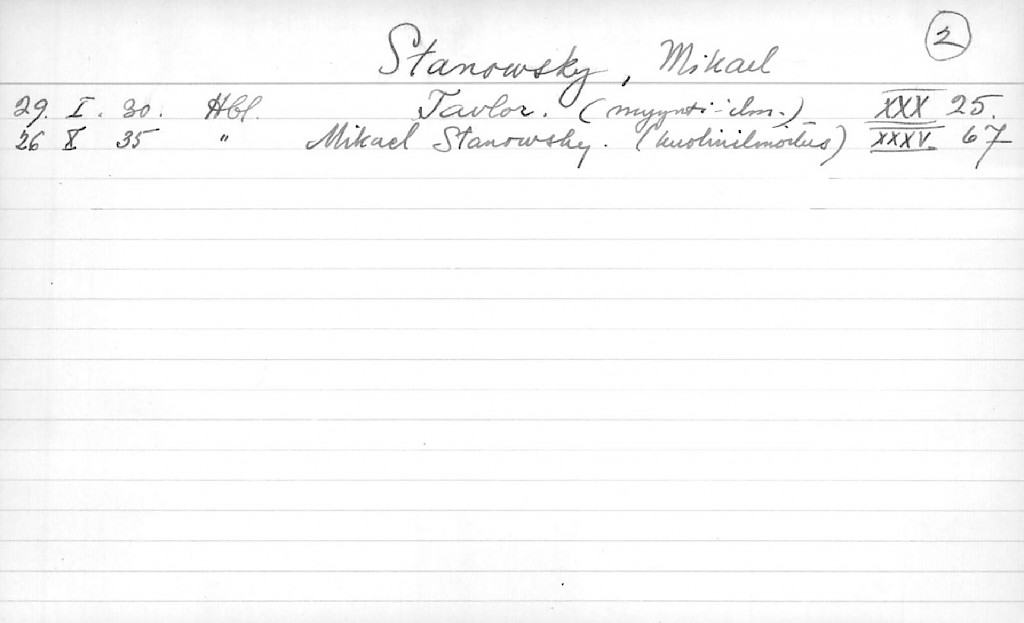 2
Stanowsky, Mikael
29. I. 30. Hbl. Tavlor. (myynti-ilm.) XXX 25.
26 X 35 " Mikael Stanowsky. (kuolinilmoitus) XXXV. 67